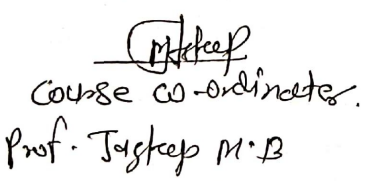 Course co-ordinator.
Prof. Jagteep M.B